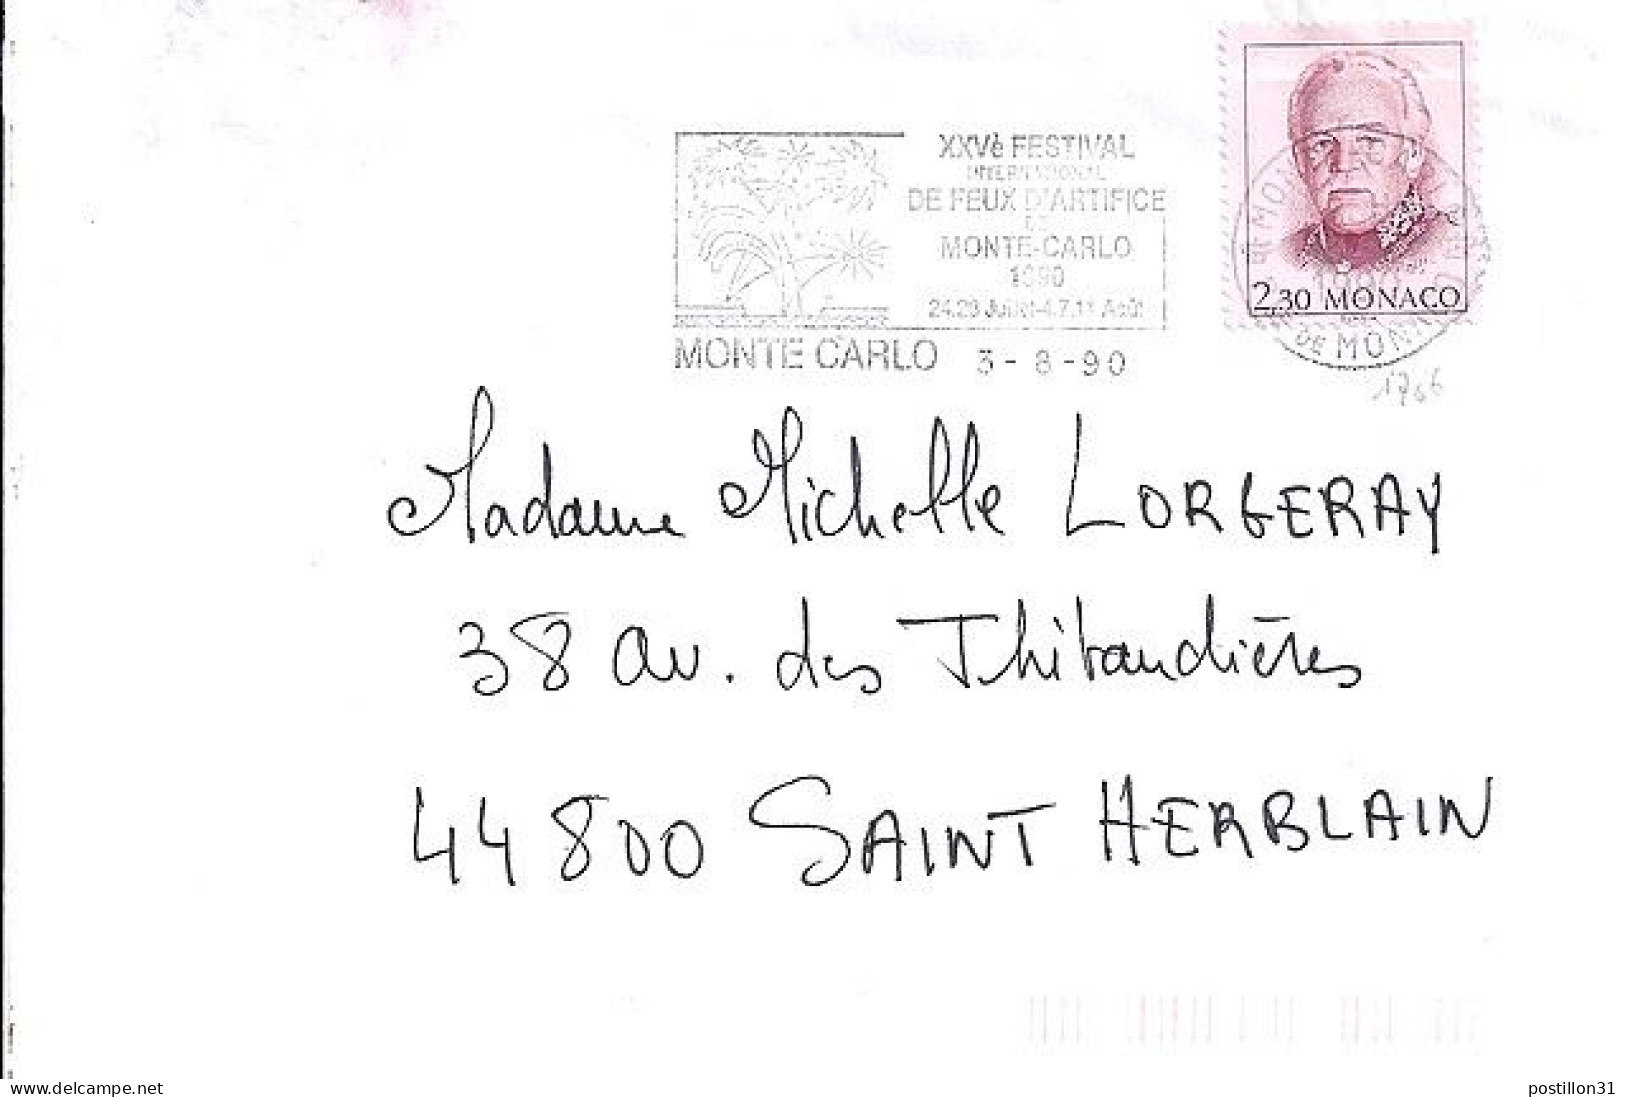 XXVè FESTIVAL
INTERNATIONAL
DE FEUX D'ARTIFICE
DE
MONTE-CARLO
1990
24.28 Juillet-4.7.11 Août
MONTE CARLO 3-8-90
2,30 MONACO
DE MONACO
1766
Madame Michelle LORGERAY
38 av. des Thibaudières
44800 SAINT HERBLAIN
www.delcampe.net
postillon31